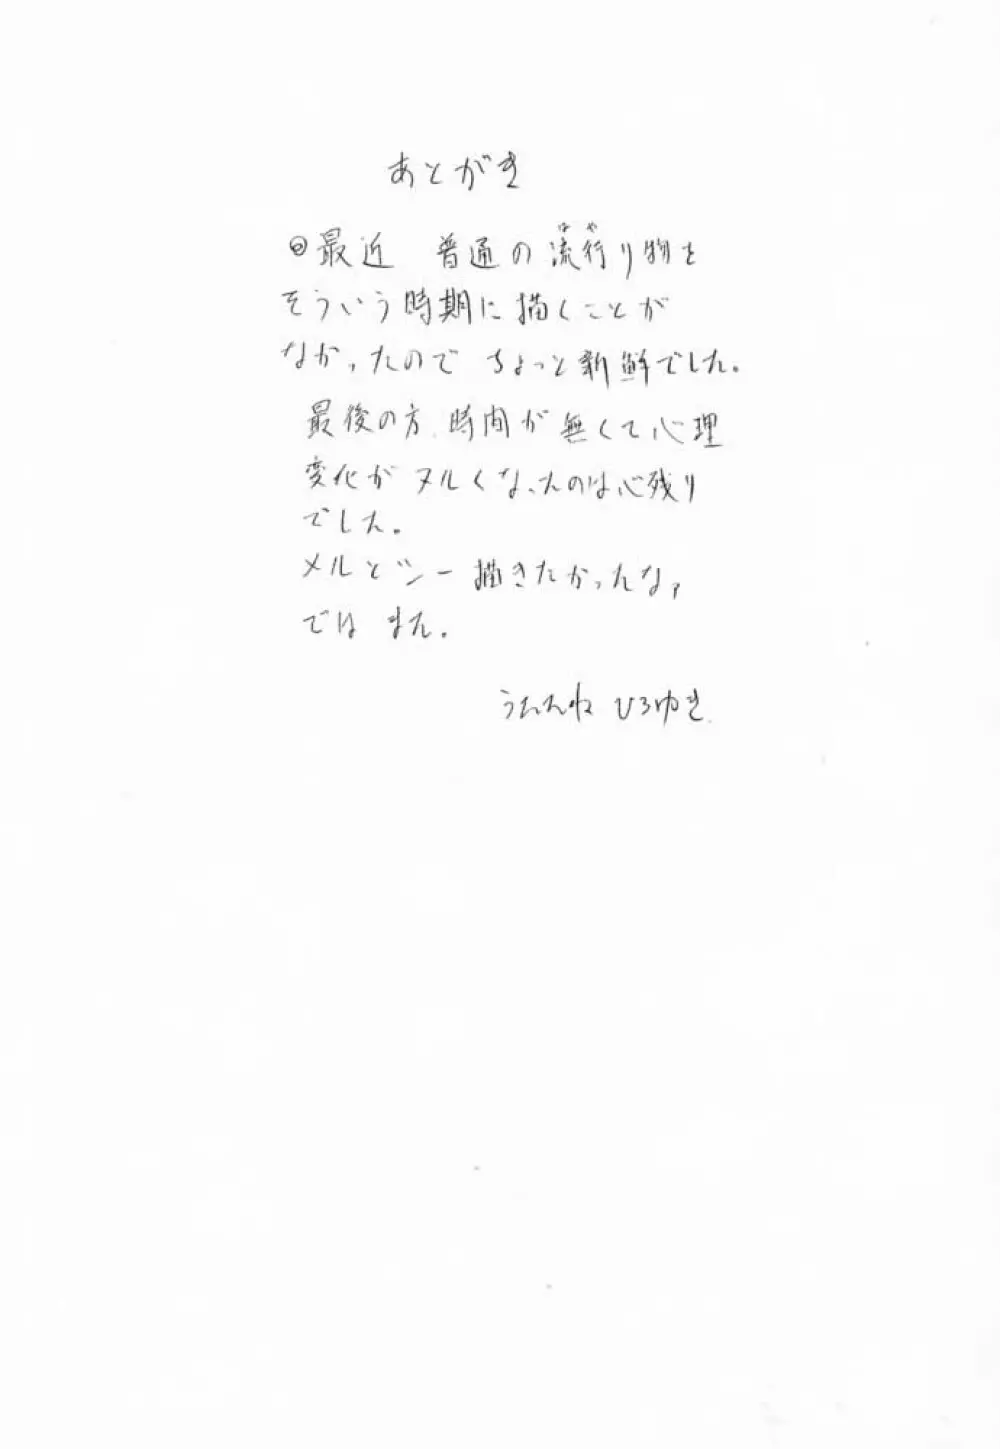 あとがき
◎最近 普通の流行り物を
そういう時期に描くことが
なかったので ちょっと新鮮でした。
最後の方、時間が無くて心理
変化が ヌルくなったのは心残り
でした。
メルとシー描きたかったなァ
では また。
うたたね ひろゆき